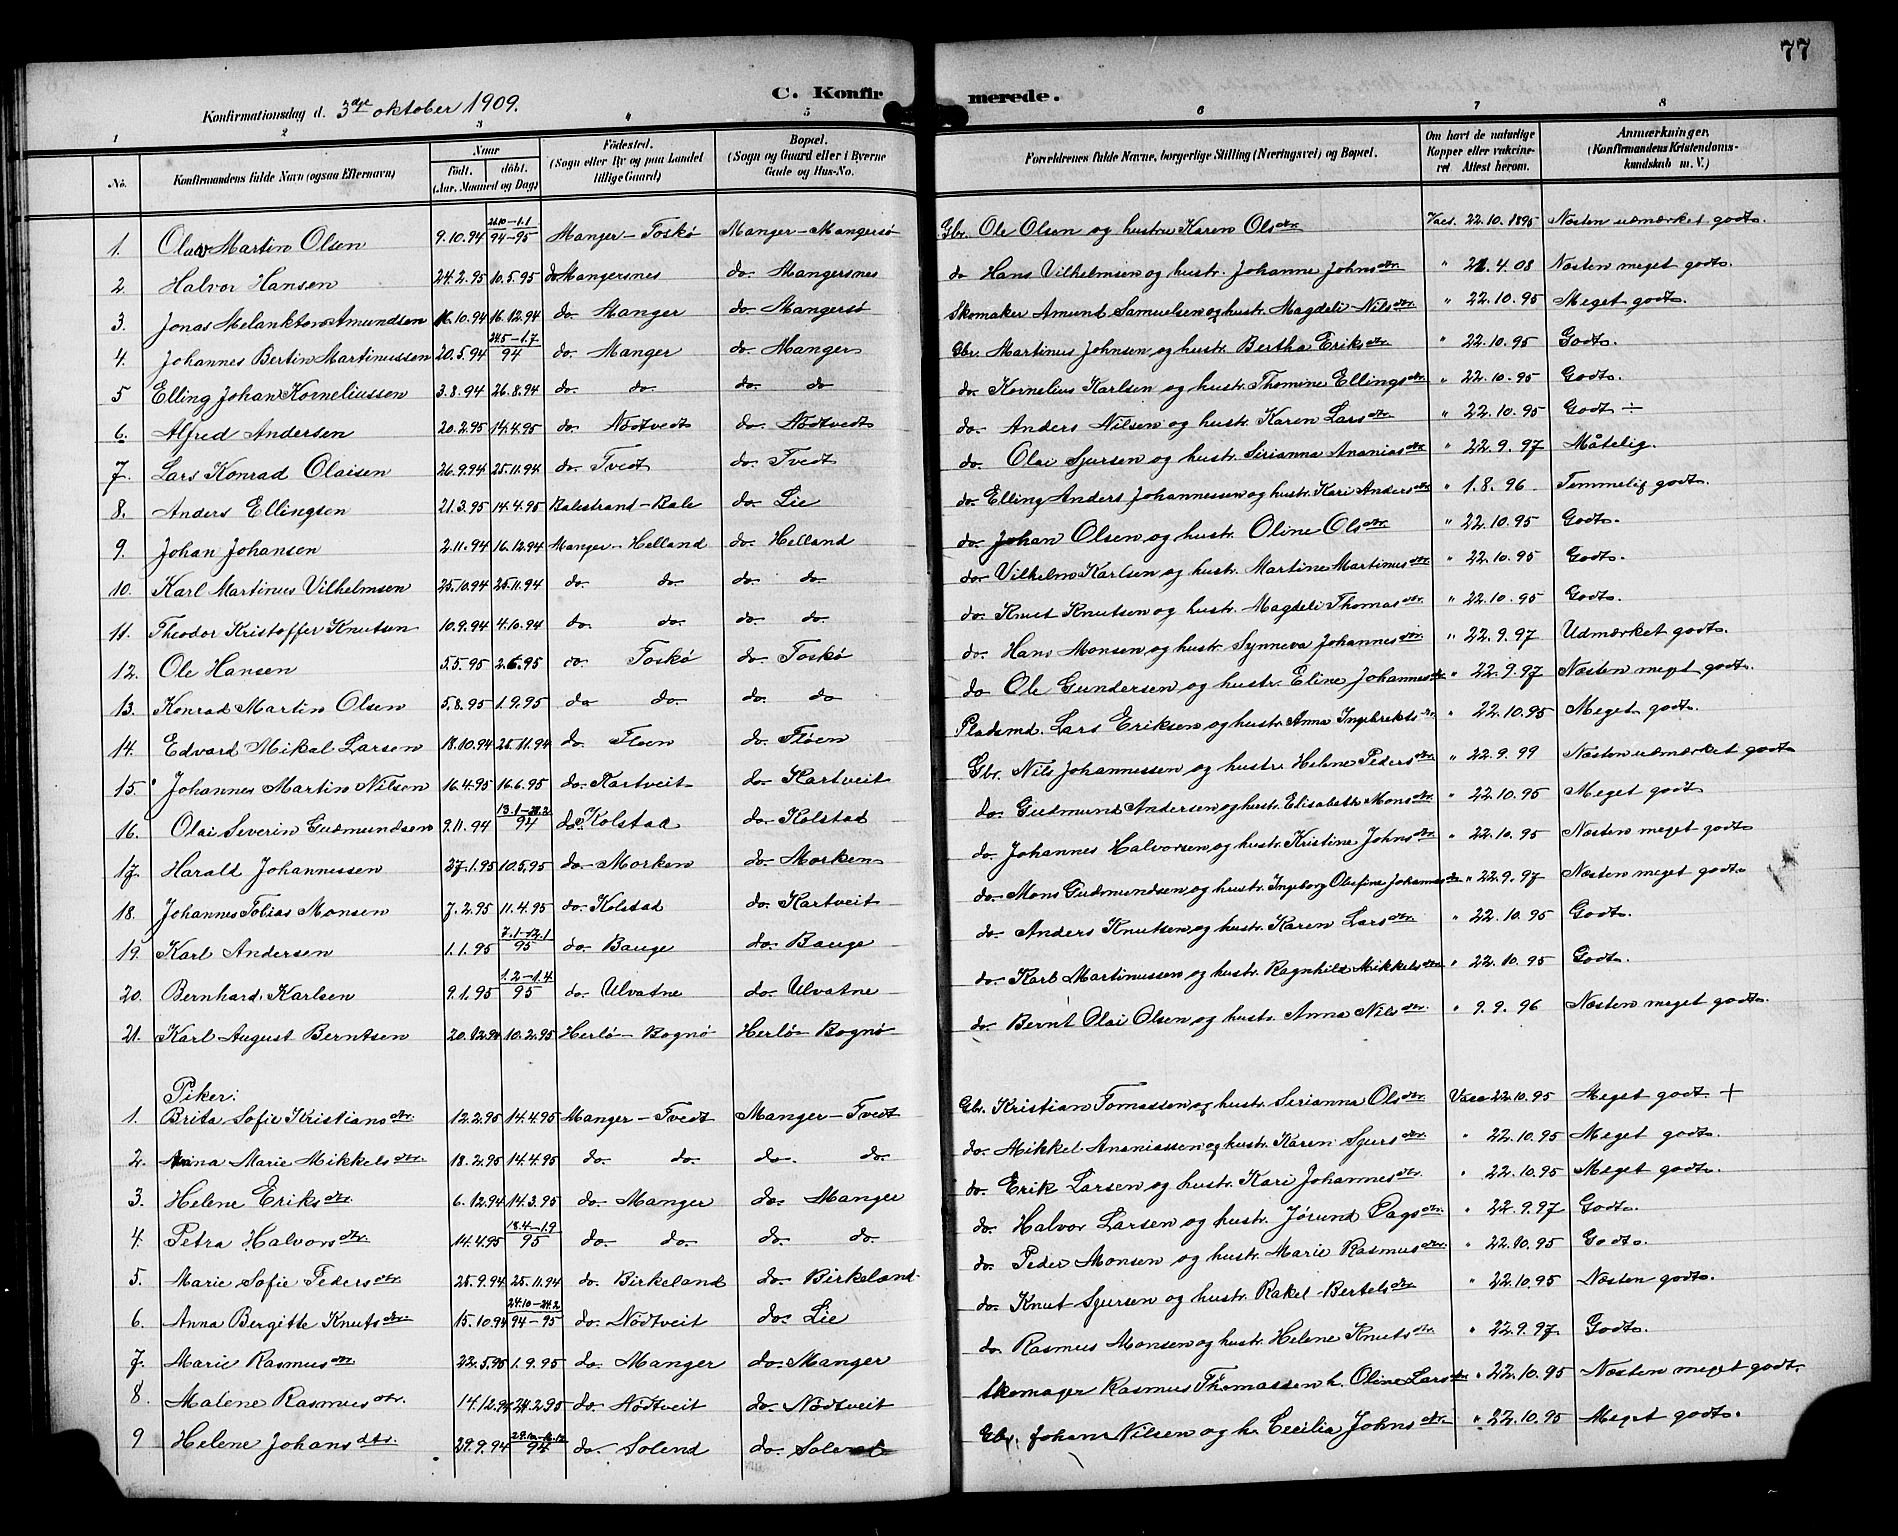 77
Konfirmationsdag d. 3die oktober 1909.
C. Konfirmerede.
1 2 3 4 5 6 7 8
No. Konfirmandens fulde Navn (ogsaa Efternavn) Naar født. døbt. (Aar, Maaned og Dag) Fødested. (Sogn eller By og paa Landet tillige Gaard) Bopæl. (Sogn og Gaard eller i Byerne Gade og Hus-No. Forældrenes fulde Navne, borgerlige Stilling (Næringsvei) og Bopæl. Om havt de naturlige Kopper eller vakcineret Attest herom. Anmærkninger, (Konfirmandens Kristendomskundskab m. V.)
1. Olav Martin Olsen 9.10.94 26.10–1.1 94–95 Manger–Toskö Manger–Mangersö Gbr. Ole Olsen og hustru Karen Olsdtr. Vacs. 22.10.1895 Næsten udmærket godt.
2. Halvor Hansen 24.2.95 10.5.95 do Mangersnes do. Mangersnes do Hans Vilhelmsen og hustr. Johanne Johnsdtr. " 21.4.08 Næsten meget godt.
3. Jonas Melankton Amundsen 16.10.94 16.12.94 do. Manger do. Mangersö Skomaker Amund Samuelsen og hustr. Magdeli Nilsdtr. " 22.10.95 Meget godt.
4. Johannes Bertin Martinussen 20.5.94 24.5–1.7 94 do. Manger do. Manger Gbr. Martinus Johnsen og hustr. Bertha Eriksdtr. " 22.10.95 Godt.
5 Elling Johan Korneliussen 3.8.94 26.8.94 do. do. do. do do. Kornelius Karlsen og hustr. Thomine Ellingsdtr. " 22.10.95 Godt.
6. Alfred Andersen 20.2.95 14.4.95 do. Nödtvedt do. Nödtvedt do. Anders Nilsen og hustr. Karen Larsdtr. " 22.10.95 Godt ÷
7. Lars Konrad Olaisen 26.9.94 25.11.94 do. Tvedt do. Tvedt do. Olai Sjursen og hustr. Sirianna Ananiasdtr. " 22.9.97 Måtelig.
8. Anders Ellingsen 21.3.95 14.4.95 Balestrand–Bale do. Lie do. Elling Anders Johannessen og hustr. Kari Andersdtr. " 1.8.96 Temmelig godt.
9. Johan Johansen 2.11.94 16.12.94 Manger–Helland do. Helland do. Johan Olsen og hustr. Oline Olsdtr. " 22.10.95 Godt.
10. Karl Martinus Vilhelmsen 25.10.94 25.11.94 do. do. do. do do. Vilhelm Karlsen og hustr. Martine Martinusdtr. " 22.10.95 Godt.
11. Theodor Kristoffer Knutsen 10.9.94 4.10.94 do. do. do. do do. Knut Knutsen og hustr. Magdeli Thomasdtr. " 22.10.95 Godt.
12. Ole Hansen 5.5.95 2.6.95 do. Toskö do. Toskö do. Hans Monsen og hustr. Synneva Johannesdtr. " 22.9.97 Udmærket godt.
13. Konrad Martin Olsen 5.8.95 1.9.95 do do. do. do do Ole Gundersen og hustr. Eline Johannesdtr. " 22.9.97 Næsten meget godt.
14. Edvard Mikal Larsen 18.10.94 25.11.94 do. Floen do. Fløen Pladsmd. Lars Eriksen og hustr. Anna Ingebrektsdtr. " 22.10.95 Meget godt.
15. Johannes Martin Nilsen 16.4.95 16.6.95 do. Kartveit do. Kartveit Gbr. Nils Johannessen og hustr. Helene Pedersdtr. " 22.9.99 Næsten udmærket godt
16. Olai Severin Gudmundsen 9.11.94 94 do. Kolstad do. Kolstad do. Gudmund Andersen og hustr. Elisabeth Monsdtr. " 22.10.95 Meget godt
17. Harald Johannessen 27.1.95 10.5.95 do. Morken do. Morken do. Johannes Halvorsen og hustr. Kristine Johnsdtr. " 22.10.95 Næsten meget godt
18. Johannes Tobias Monsen 7.2.95 11.4.95 do. Kolstad do. Kartveit do. Mons Gudmundsen og hustr. Ingeborg Olufine Johannesdtr. " 22.9.97 Næsten meget godt.
19. Karl Andersen 1.1.95 95 do. Bauge do. Bauge do. Anders Knutsen og hustr. Karen Larsdtr. " 22.10.95 Godt.
20. Bernhard Karlsen 9.1.95 1.2–1.4 95 do. Ulvatne do. Ulvatne do. Karl Martinussen og hustr. Ragnhild Mikkelsdtr. " 22.10.95 Godt.
21. Karl August Berntsen 20.12.94 10.2.95 Herlö–Bognö Herlö–Bognö do. Bernt Olai Olsen og hustr. Anna Nilsdtr. " 9.9.96 Næsten meget godt.
Piker:
1. Brita Sofie Kristiansdtr. 12.2.95 14.4.95 Manger–Tvedt Manger–Tvedt Gbr. Kristian Tomassen og hustr. Sirianna Olsdtr. Vacc. 22.10.95 Meget godt +
2. Anna Marie Mikkelsdtr. 18.2.95 14.4.95 do. do. do. do do. Mikkel Ananiassen og hustr. Karen Sjursdtr. " 22.10.95 Meget godt.
3. Helene Eriksdtr. 6.12.94 14.3.95 do. Manger do. Manger do. Erik Larsen og hustr. Kari Johannesdtr. " 22.10.95 Meget godt.
4. Petra Halvorsdtr. 14.4.95 18.4–1.9 95 do. do. do. do. do. Halvor Larsen og hustr. Jörund Dagsdtr. " 22.9.97 Godt.
5. Marie Sofie Pedersdtr. 25.9.94 25.11.94 do. Birkeland do. Birkeland do. Peder Monsen og hustr. Marie Rasmusdtr. " 22.10.95 Godt.
6. Anna Bergitte Knutsdtr. 15.10.94 24.10–24.2 94–95 do. Nödtveit do. Lie do. Knut Sjursen og hustr. Rakel Bertelsdtr. " 22.10.95 Næsten godt.
7. Marie Rasmusdtr. 22.5.95 1.9.95 do. Manger do. Manger do. Rasmus Monsen og hustr. Helene Knutsdtr. " 22.9.97 Godt.
8. Malene Rasmusdtr. 14.12.94 24.2.95 do. Nödtveit do. Nödtveit Skomager Rasmus Thomassen h. Oline Larsdtr. " 22.10.95 Næsten meget godt.
9 Helene Johansdtr. 29.9.94 94 do. Solend do. Gbr. Johan Nilsen og h. Cecilia Johnsdtr. " 22.10.95 Meget godt.